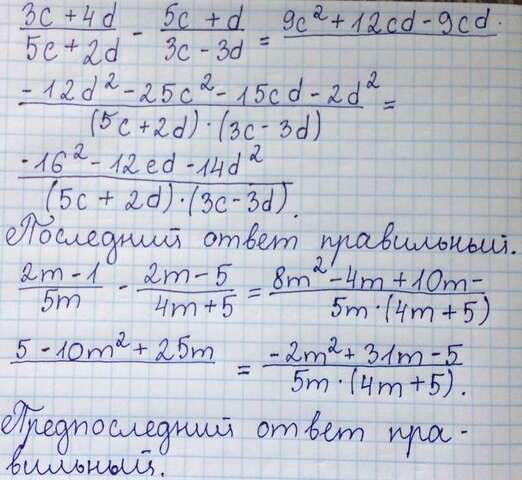 (3c + 4d)/(5c + 2d) - (5c + d)/(3c - 3d) = (9c² + 12cd - 9cd -
- 12d² - 25c² - 15cd - 2d²)/((5c + 2d) · (3c - 3d)) =
(-16² - 12cd - 14d²)/((5c + 2d) · (3c - 3d)).
Последний ответ правильный.
(2m - 1)/5m - (2m - 5)/(4m + 5) = (8m² - 4m + 10m -)/(5m · (4m + 5))
5 - 10m² + 25m = (-2m² + 31m - 5)/(5m · (4m + 5)).
Предпоследний ответ пра-
вильный.